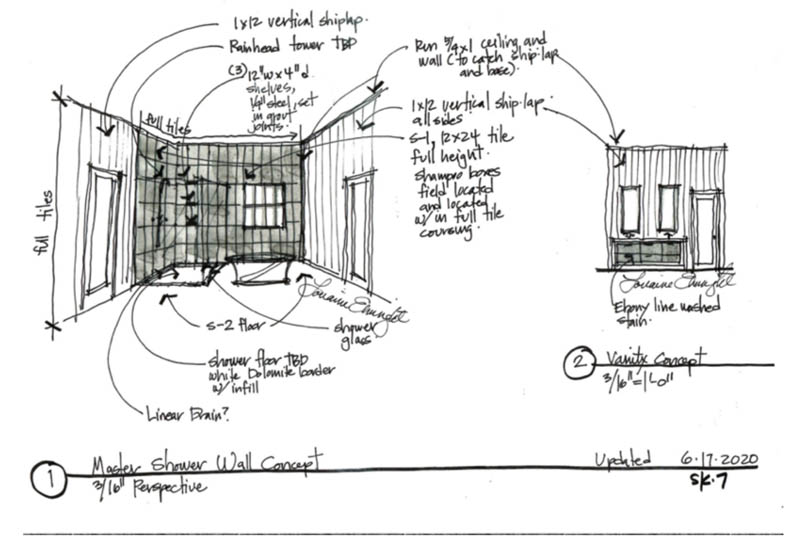 1x12 vertical shiplap.
Rainhead tower TBD
(3) 12"w x 4"d
shelves,
1/4" steel, set
in grout
joints.
full tiles
full tiles
Run 5/4x1 ceiling and
wall (to catch ship·lap
and base).
1x12 vertical ship·lap.
all sides
S-1, 12x24 tile
full height.
shampoo boxes
field located
and located
w/in full tile
coursing.
S-2 floor
shower
glass
shower floor TBD
white Dolomite border
w/ infill
Linear Drain?
Ebony line washed
stain.
2 Vanity Concept
3/16"=1'-0"
1 Master Shower Wall Concept
3/16" Perspective
Updated 6·17·2020
SK.7